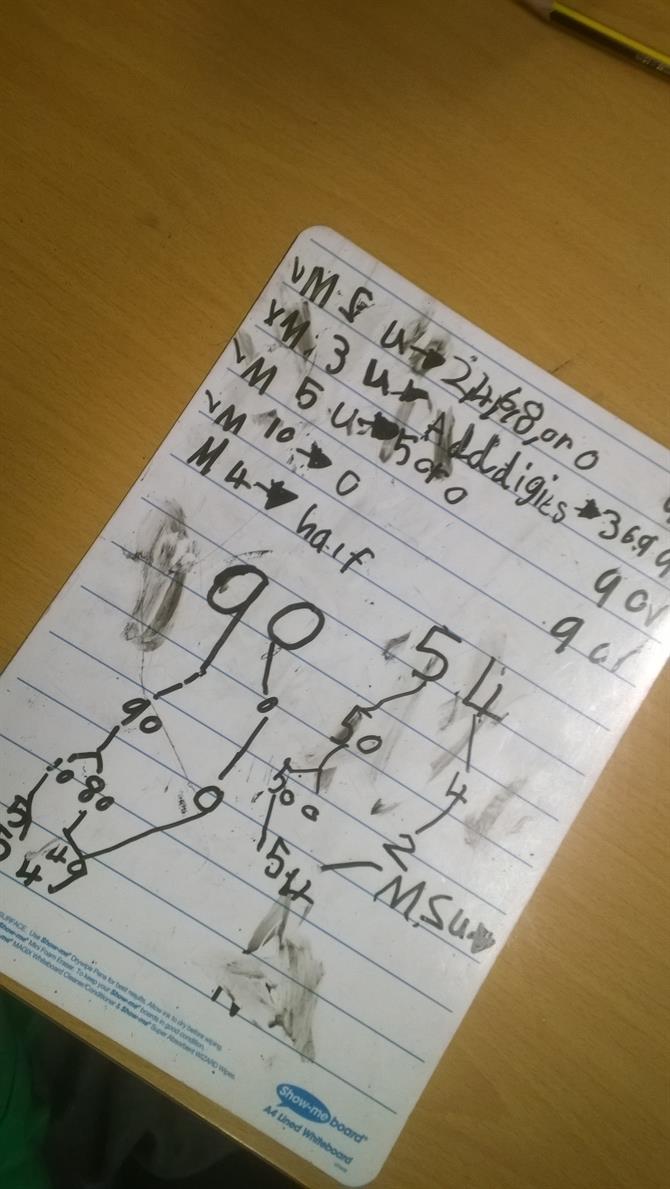 M 2 u→ 2,4,6,8, or 0
M 3 u→ Add digits → 3 6 9
M 5 u→ 5 or 0
M 10 → 0
M 4 → half
9 or
9 or
90
54
90
0
50
4
10 80
0
500
2
5
40
54
M.Su
SURFACE. Use Show-me® Drywipe Pens for best results. Allow ink to dry before wiping.
Show-me® Mini Foam Eraser. To keep your Show-me® boards in good condition,
MAGIX Whiteboard Cleaner/Conditioner & Show-me® Super Absorbent WIZARD Wipes.
Show-me board®
A4 Lined Whiteboard